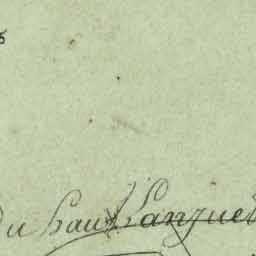 Du haut Langued